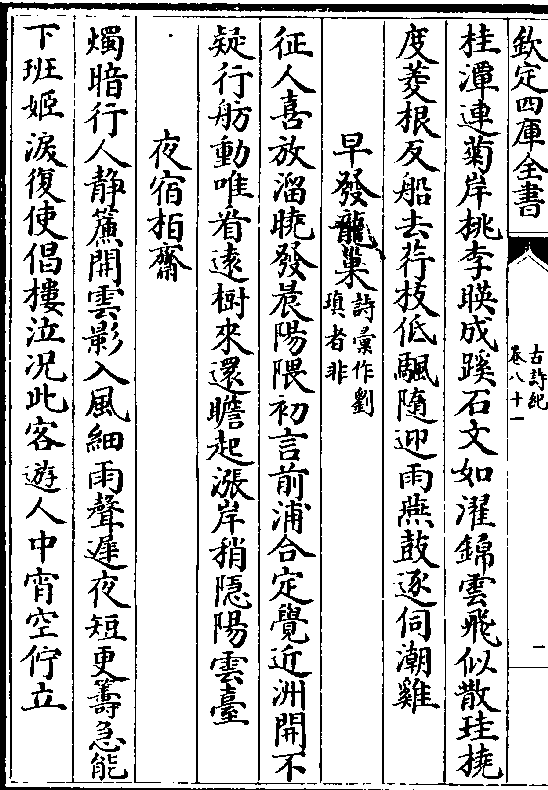 欽定四庫全書
古詩紀
卷八十一
一
桂潭連菊岸桃李暎成蹊石文如濯錦雲飛似散珪橈
度菱根反船去荇枝低飄隨迎雨燕鼓逐伺潮雞
早發龍巢詩彙作劉
瑱者非
征人喜放溜曉發晨陽隈初言前浦合定覺近洲開不
疑行舫動唯看遠樹來還瞻起漲岸稍隱陽雲臺
夜宿栢齋
燭暗行人静簾開雲影入風細雨聲遲夜短更籌急能
下班姬淚復使倡樓泣况此客遊人中宵空佇立